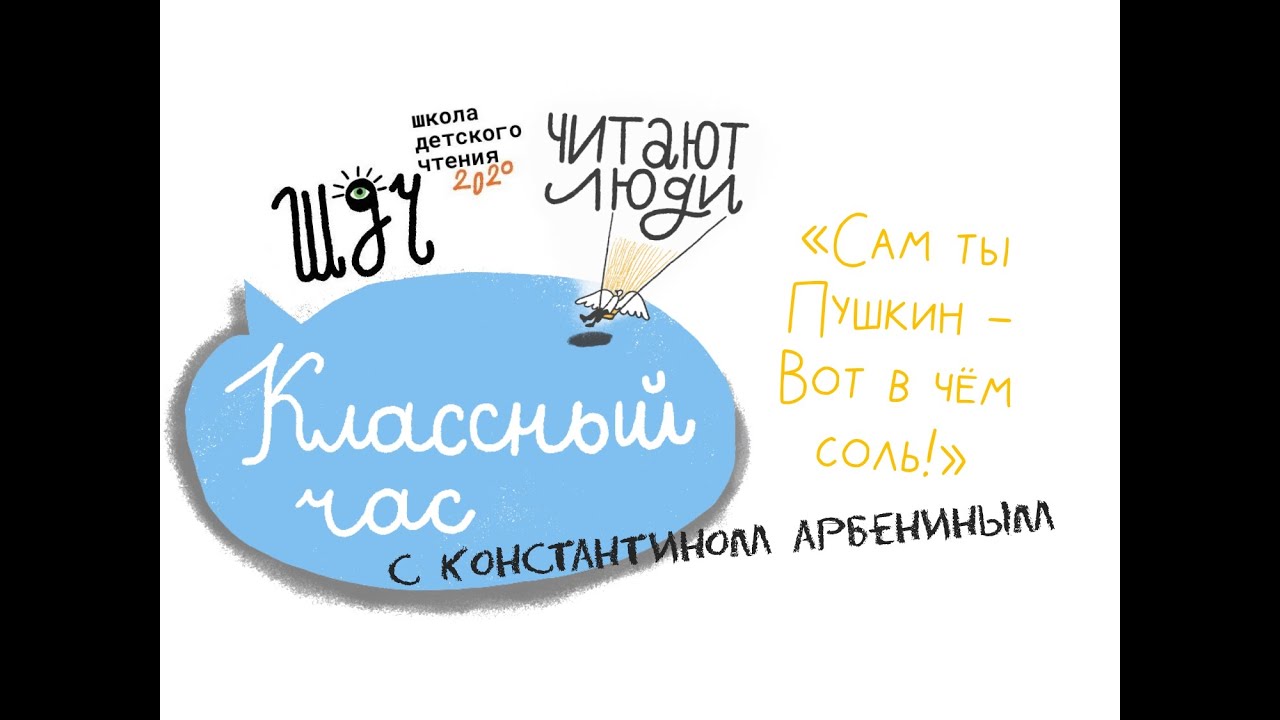 школа
детского
чтения
2020
шдч
ЧИТАЮТ
ЛЮДИ
«Сам ты
Пушкин –
Вот в чём
соль!»
Классный
час
с КОНСТАНТИНОМ АРБЕНИНЫМ